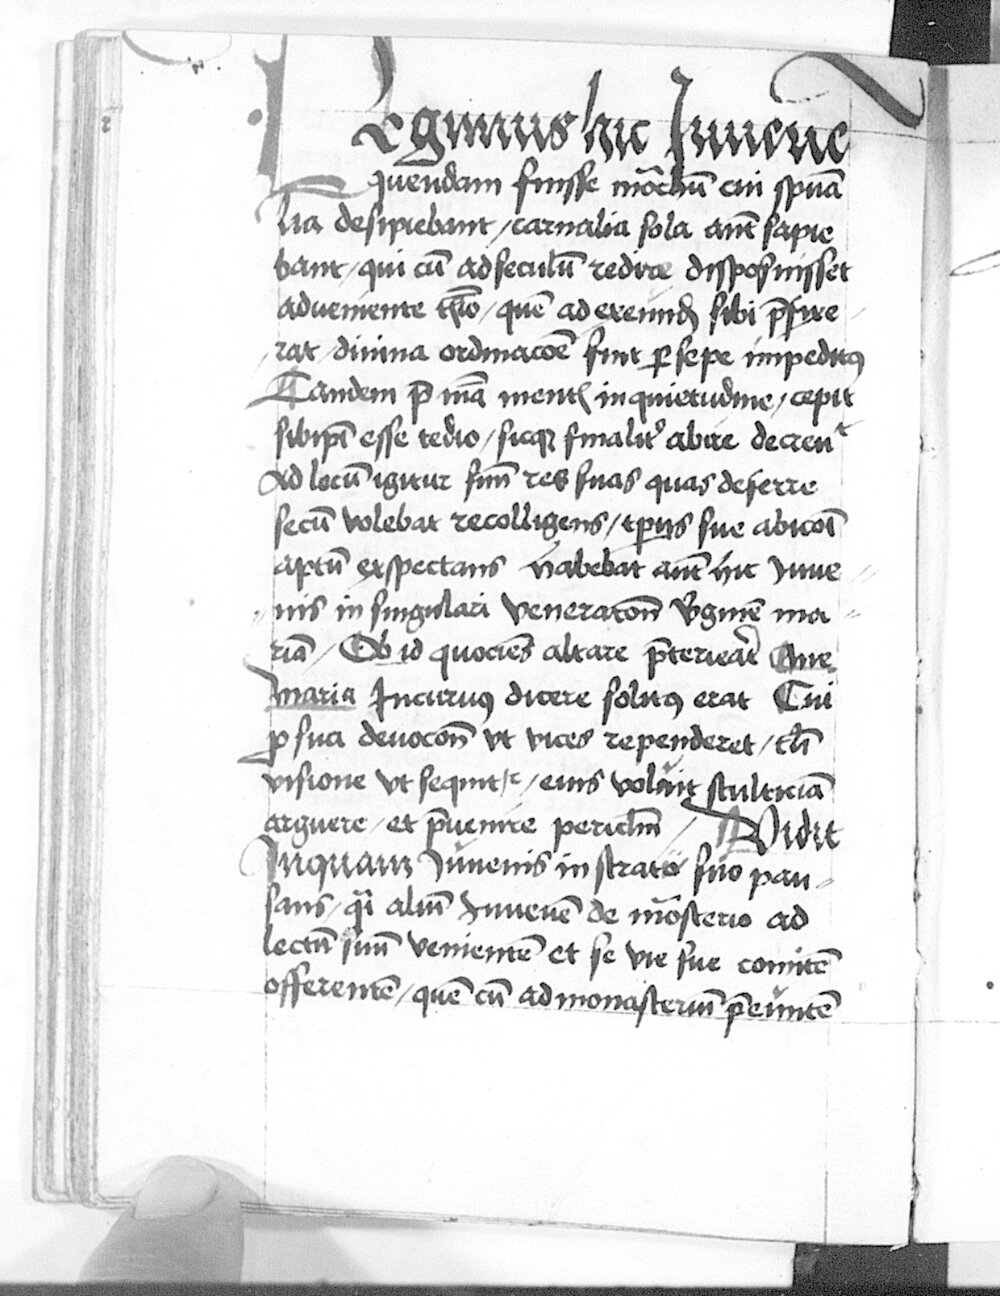 Legimus hic Juuene
quendam fuisse moͣchū cui spūa
lia desipiebant / carnalia sola aūt sapie
bant / qui cū ad seculū redire disposuisset
adueniente tp̄io / quē ad exeundū sibi p̄fixe
rat / diuina ordinacōe fuit ꝑsepe impeditꝰ
Tandem p̄ nīa mentis inquietudine / cepit
sibip̄i esse tedio / sicqꝫ finalit᷒ abire decreuᵗ
Ad locū igitur suū res suas quas deferre
secū volebat recolligens / tp̄us sue abicōi
aptū exspectans habebat aūt hic Juue
nis in singulari veneracōn v̄ginē ma
riā / Ob id quociēs altare p̄terieāt Aue
maria Incuruꝰ dicere solitꝰ erat Cui
p sua deuocōn vt vices rependeret / tal̄i
visione vt sequitᷣ / eius voluit stulticiā
arguere / et p̄uenire pericl̄m / Vidit
Inquam Juuenis in strato suo pau
sans / qͣi aliū Juuenē de moͣsterio ad
lectū suū venientē et se vie sue comitē
offerentē / quē cū ad monasteriū p̄euntē